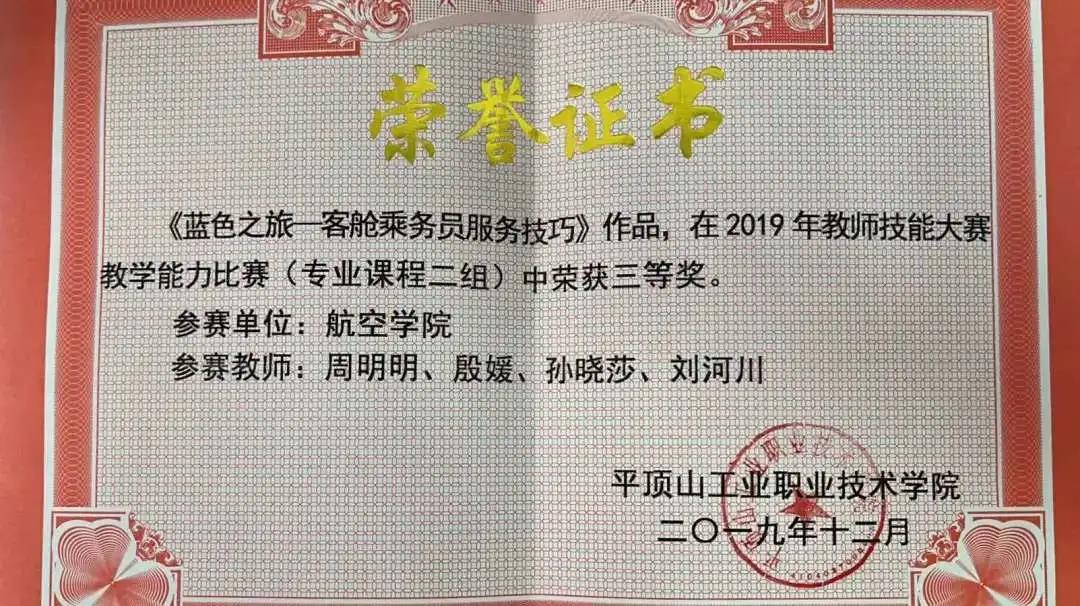 荣誉证书
《蓝色之旅—客舱乘务员服务技巧》作品，在 2019 年教师技能大赛
教学能力比赛（专业课程二组）中荣获三等奖。
参赛单位：航空学院
参赛教师：周明明、殷媛、孙晓莎、刘河川
平顶山工业职业技术学院
二〇一九年十二月